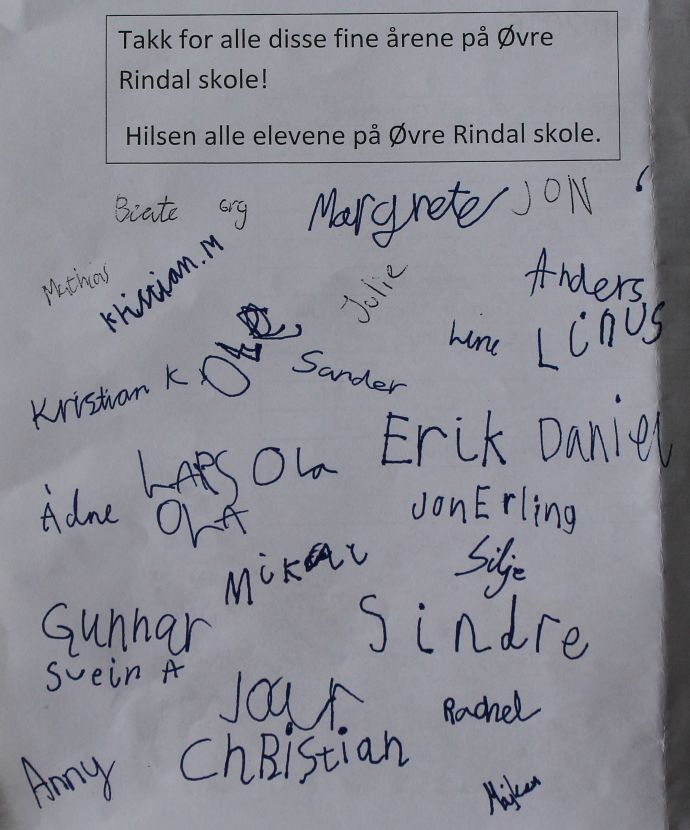 Takk for alle disse fine årene på Øvre
Rindal skole!
Hilsen alle elevene på Øvre Rindal skole.
Beate Gry Margrete JON
Mathias Khistian.M Julie Anders
Line LiNUS
Kristian K OLE Sander
Erik Daniel
Ådne LARS Ola
OLA JonErling
Mikal Silje
Gunnar Sindre
Svein A
Rachel
Anny ChRistian